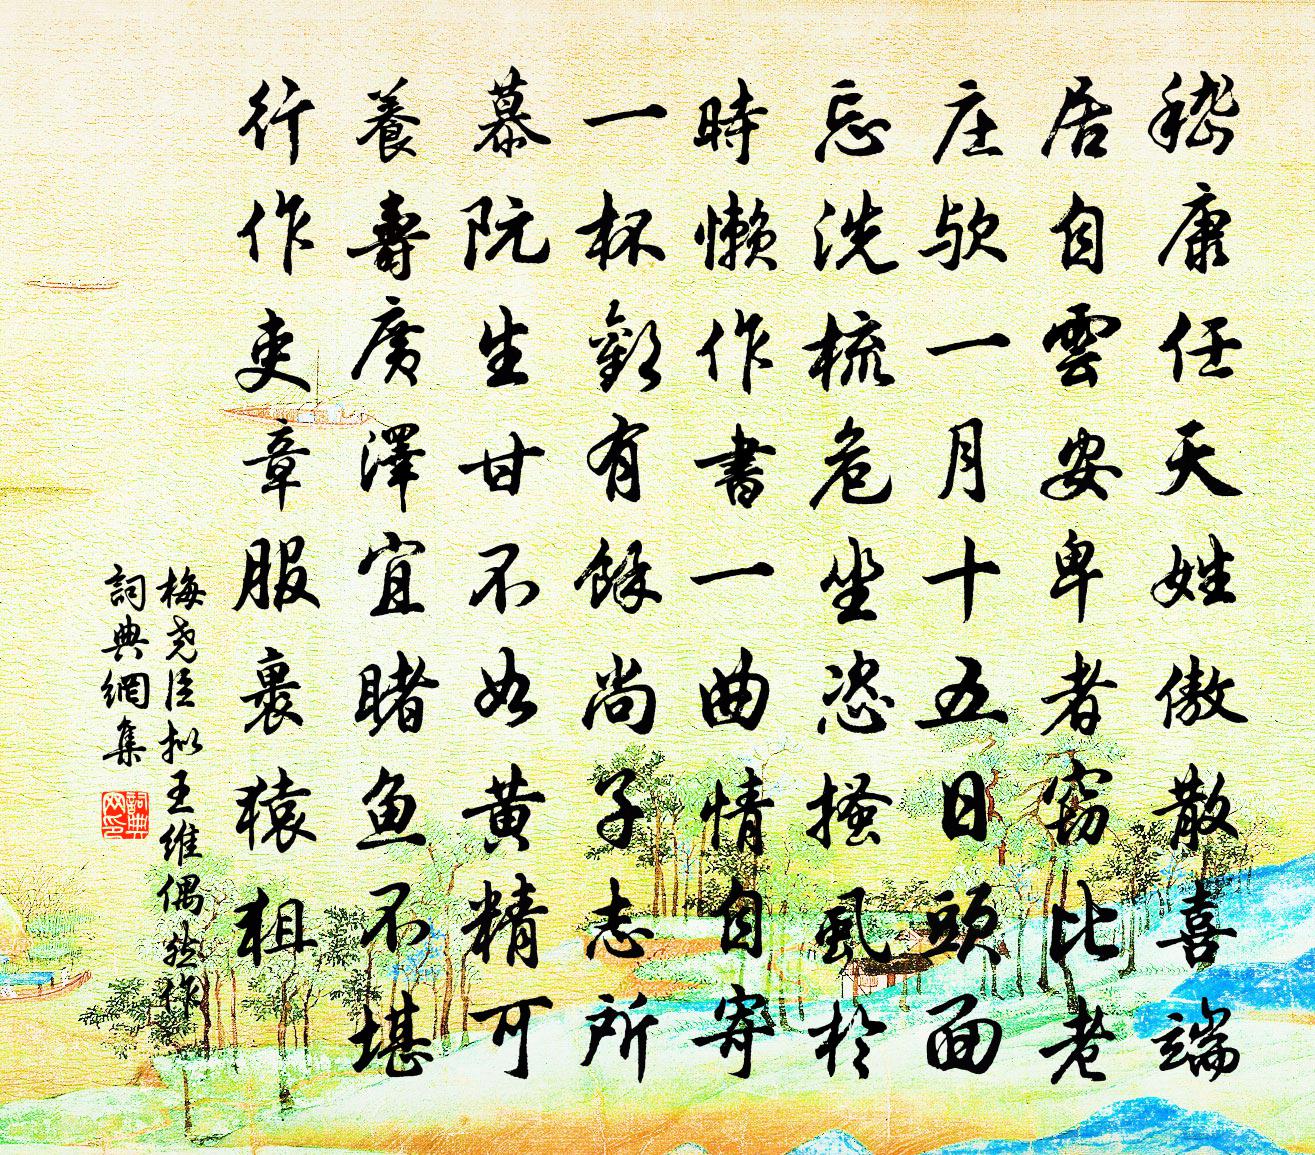 嵇康任天姓傲散喜端
居自雲安卑者窃比老
庄欤一月十五日頭面
忘洗梳危坐恣搔虱於
時懶作書一曲情自寄
一杯歡有餘尚子志所
慕阮生甘不如黄精可
養壽廣澤宜睹鱼不堪
行作吏章服裹猿狙
梅尧臣拟王維偶然作
詞典網集
詞典
网印